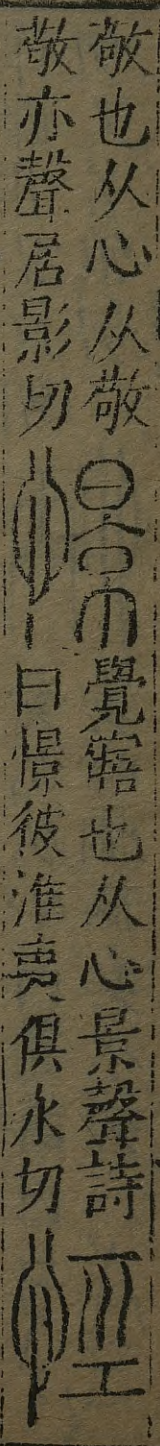 敬也从心从敬
敬亦聲居影切
憬
覺寤也从心景聲詩
曰憬彼淮夷俱永切